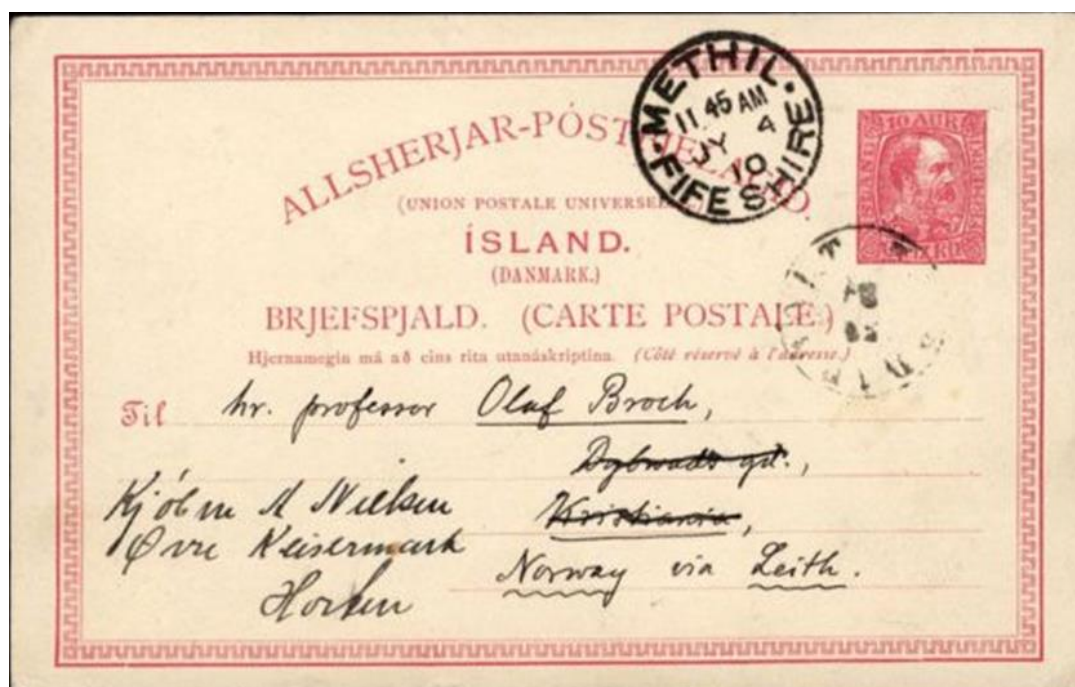 ALLSHERJAR-PÓST
(UNION POSTALE UNIVERSE
ÍSLAND.
(DANMARK.)
BRJEFSPJALD. (CARTE POSTALE.)
Hjernamegin má að eins rita utanáskriptina. (Côté réservé à l'adresse.)
METHIL
11 45 AM
JY 4
10
FIFESHIRE
10 AUR
Til hr. professor Olaf Broch,
Dybwads gd.,
Kristiania,
Norway via Leith.
Kjøbm M Nielsen
Øvre Keisermark
Horten